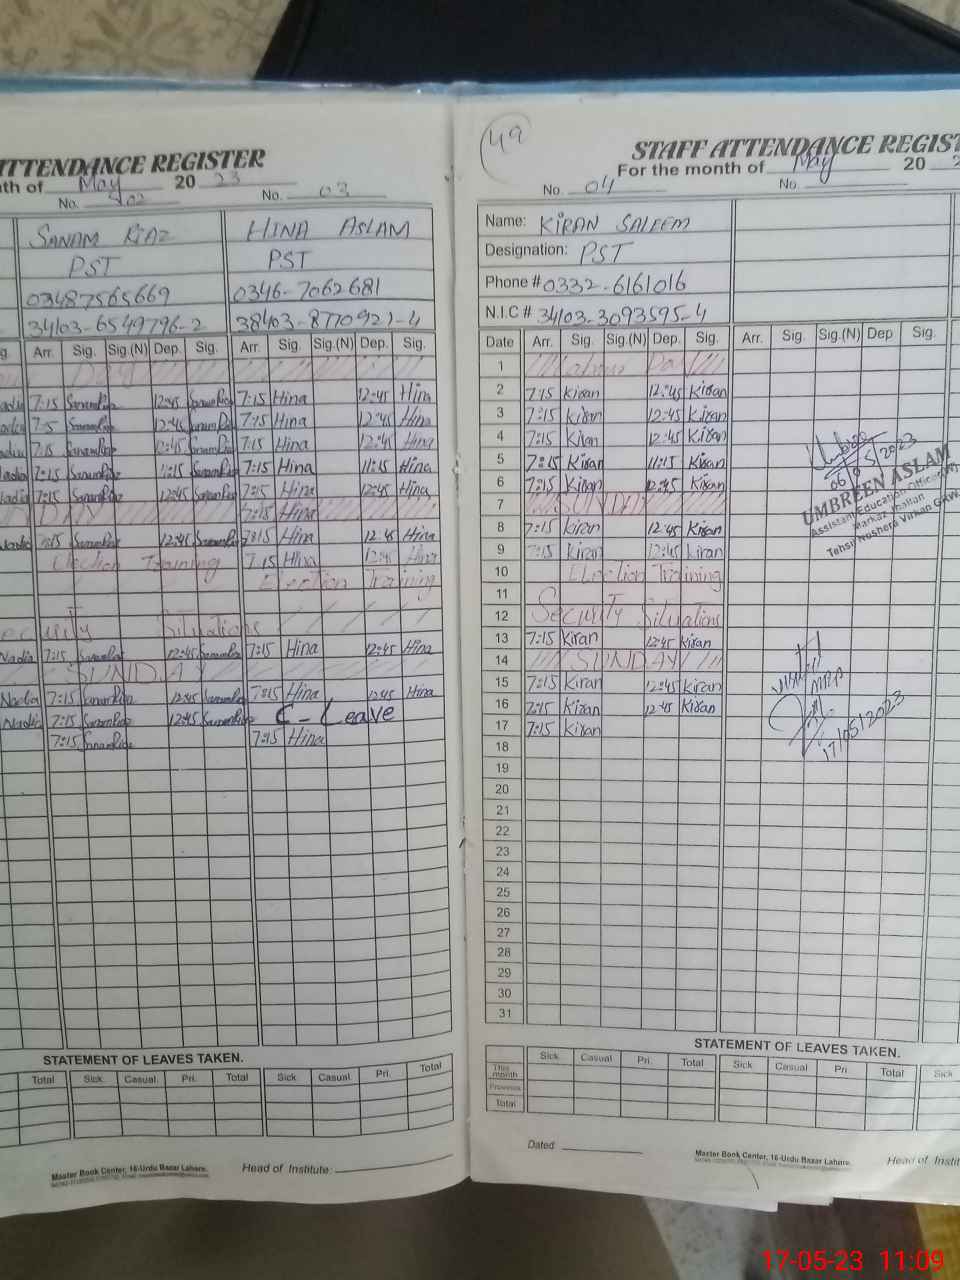 ATTENDANCE REGISTER
th of May 20 23
No. 02 No. 03
SANAM RIAZ HINA ASLAM
PST PST
03487565669 0346-7062681
34103-6549796-2 38403-8770921-4
g. Arr. Sig. Sig.(N) Dep. Sig. Arr. Sig. Sig.(N) Dep. Sig.
Day
7:15 12:45 7:15 Hina 12:45 Hina
12:45 7:15 Hina 12:45 Hina
7:15 12:45 7:15 Hina 12:45 Hina
7:15 11:15 7:15 Hina 11:15 Hina
7:15 12:45 7:15 Hina 12:45 Hina
7:15 Hina
7:15 12:45 7:15 Hina 12:45 Hina
Election Training 7:15 Hina 12:45 Hina
Election Training
Security Situations
Nadia 7:15 12:45 7:15 Hina 12:45 Hina
SUNDAY
7:15 12:45 7:15 Hina 12:45 Hina
Nadia 7:15 12:45 C-Leave
7:15 7:15 Hina
STATEMENT OF LEAVES TAKEN.
Total Sick Casual Pri. Total Sick Casual. Pri. Total
Master Book Center, 16-Urdu Bazar Lahore.
Head of Institute:
49
STAFF ATTENDANCE REGIST
For the month of May 20 2
No. 04 No.
Name: KIRAN SALEEM
Designation: PST
Phone # 0332-6161016
N.I.C # 34103-3093595-4
Date Arr. Sig. Sig.(N) Dep. Sig. Arr. Sig. Sig.(N) Dep Sig.
1 Labour Day
2 7:15 Kiran 12:45 Kiran
3 7:15 Kiran 12:45 Kiran
4 7:15 Kiran 12:45 Kiran
5 7:15 Kiran 11:15 Kiran
6 7:15 Kiran 12:45 Kiran
7 SUNDAY
8 7:15 Kiran 12:45 Kiran
9 7:15 Kiran 12:45 Kiran
10 Election Training
11
12 Security Situations
13 7:15 Kiran 12:45 Kiran
14 SUNDAY
15 7:15 Kiran 12:45 Kiran
16 7:15 Kiran 12:45 Kiran
17 7:15 Kiran
18
19
20
21
22
23
24
25
26
27
28
29
30
31
06/05/2023
UMBREEN ASLAM
Assistant Education Officer
Markaz
Tehsil Noshera Virkan GRW
Visited
17/05/2023
STATEMENT OF LEAVES TAKEN.
Sick Casual Pri. Total Sick Casual Pri. Total Sick
This month
Previous
Total
Dated
Master Book Center, 16-Urdu Bazar Lahore.
Head of Instit
17-05-23 11:09